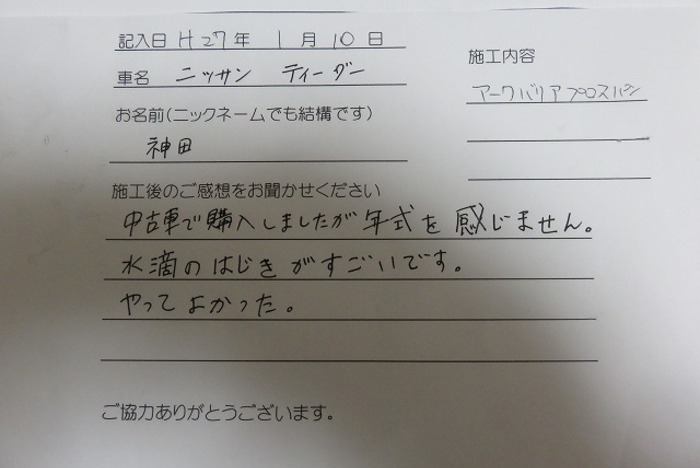 記入日 H27年 1月10日
車名 ニッサン ティーダー
お名前(ニックネームでも結構です)
神田
施工内容
アークバリアプロスパン
施工後のご感想をお聞かせください
中古車で購入しましたが年式を感じません。
水滴のはじきがすごいです。
やってよかった。
ご協力ありがとうございます。